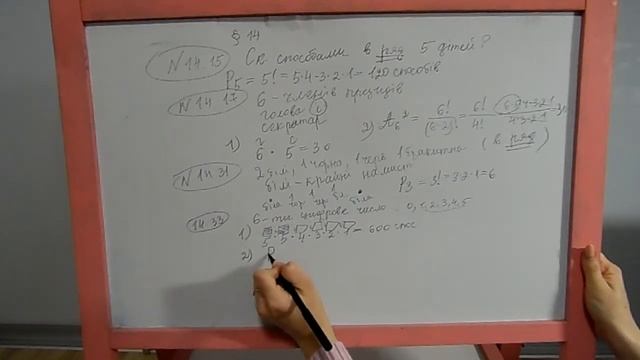 § 14
N 14.15 Ск. способами в ряд 5 дітей?
P₅ = 5! = 5·4·3·2·1 = 120 способів
N 14.17 6 – членів президії
голова (і)
секретар
1) 6 · 5 = 30
2) A₆² = 6!/(6-2)! = 6!/4! =
N 14.31 2 біл, 1 чорн, 1 черв 1 блакитна (в ряд)
біл – крайні намист
P₃ = 3! = 3·2·1 = 6
14.33 6 – ти цифрове число 0,1,2,3,4,5
1) 5 · 5 · 4 · 3 · 2 · 1 = 600 спос
2)